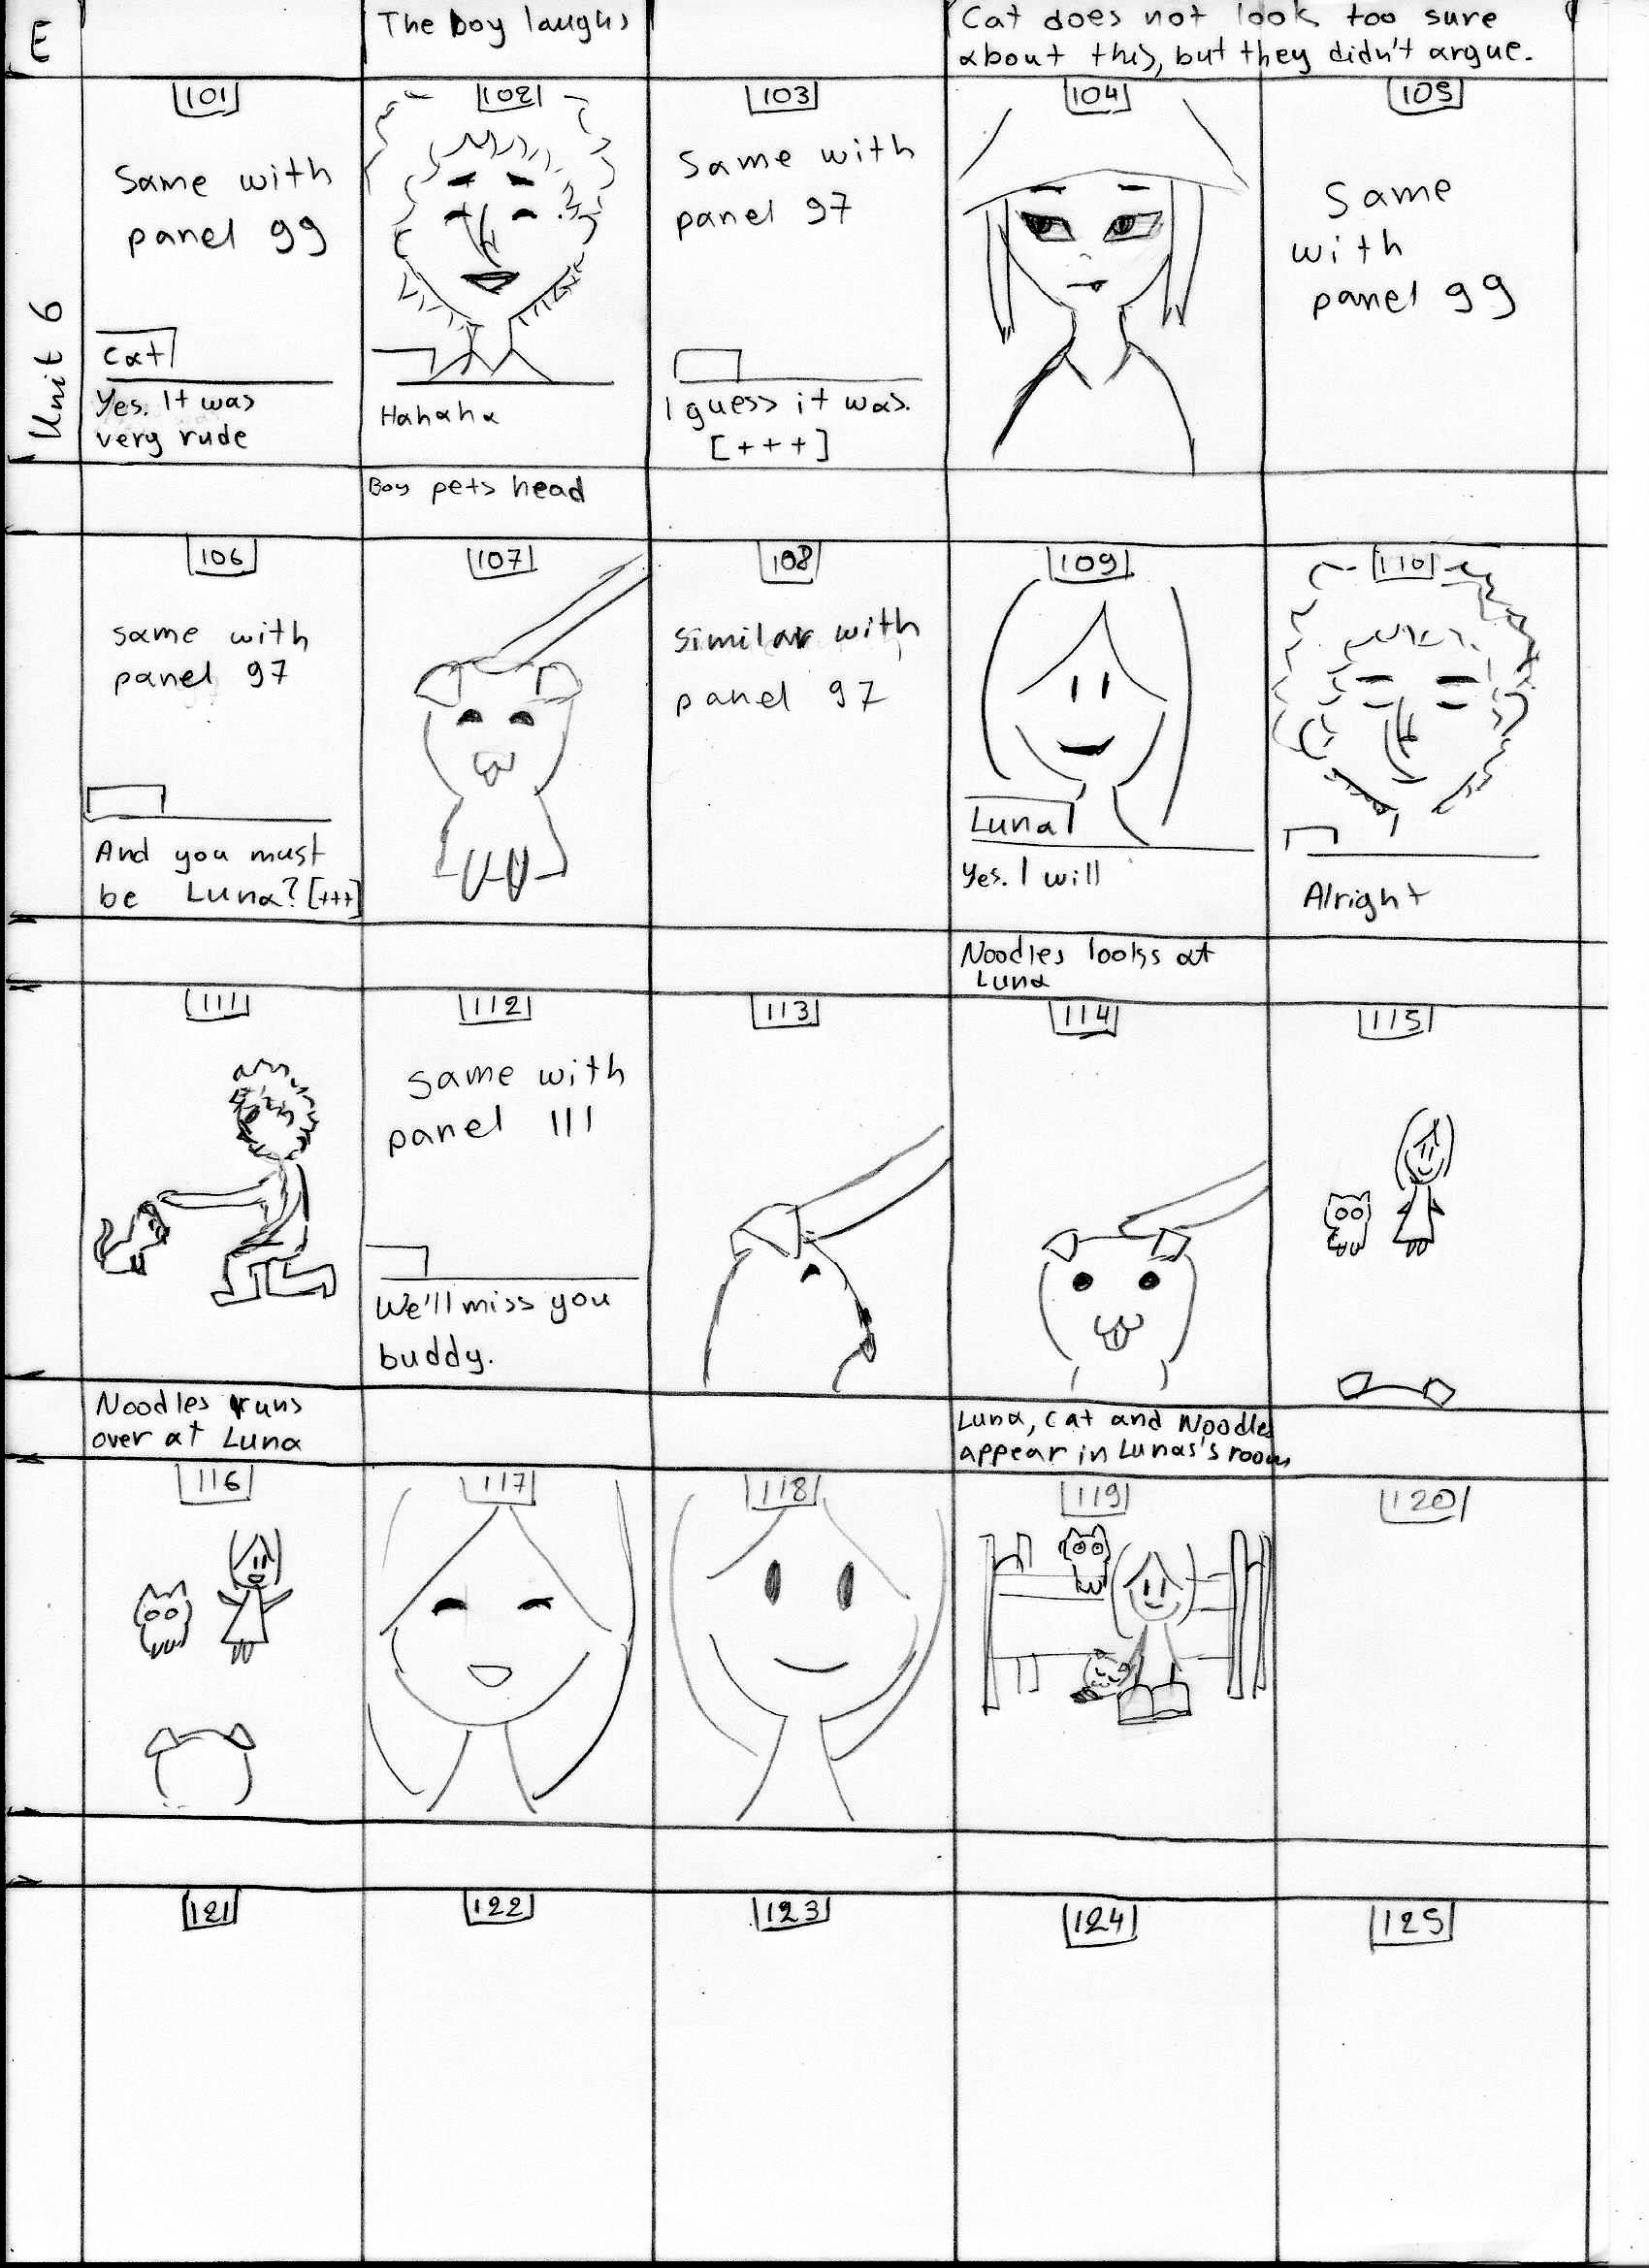 E
The boy laughs
Cat does not look too sure
about this, but they didn't argue.
Unit 6
101
Same with
panel 99
Cat
Yes. It was
very rude
102
Hahaha
103
Same with
panel 97
I guess it was.
[+++]
104
105
Same
with
panel 99
Boy pets head
106
same with
panel 97
And you must
be Luna? [+++]
107
108
similar with
panel 97
109
Luna
Yes. I will
110
Alright
Noodles looks at
Luna
111
112
same with
panel 111
We'll miss you
buddy.
113
114
115
Noodles runs
over at Luna
Luna, Cat and Noodles
appear in Lunas's room
116
117
118
119
120
121
122
123
124
125